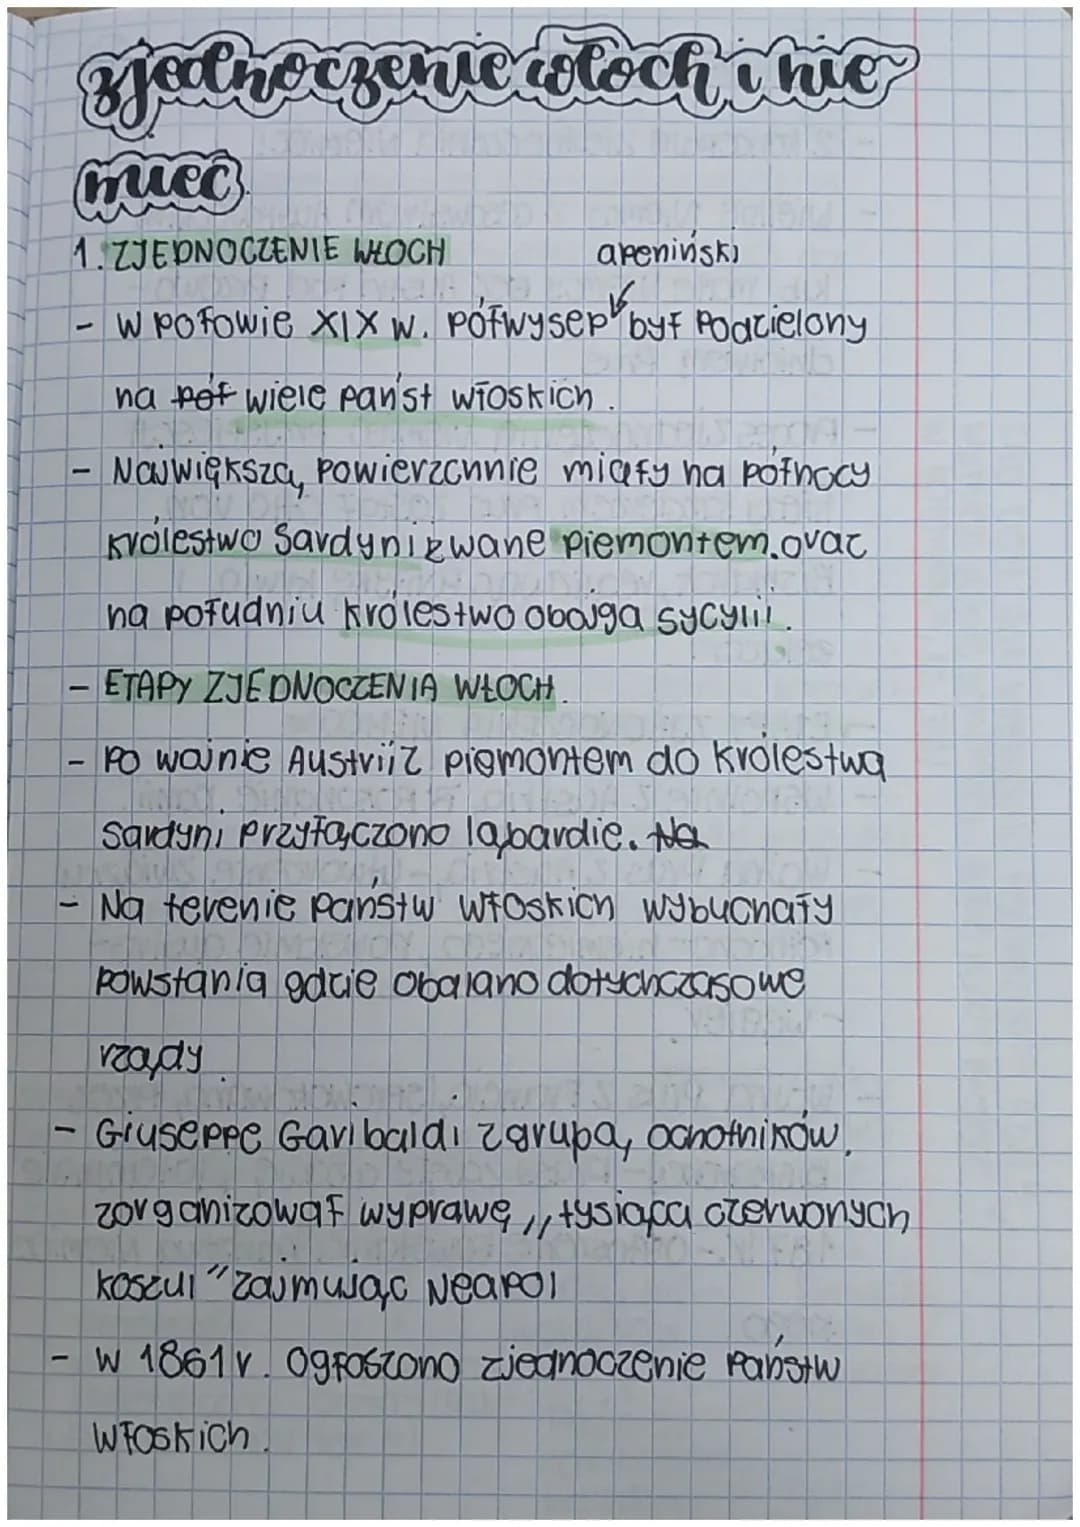 zjednoczenie włoch i nie
miec
1. ZJEDNOCZENIE WŁOCH
apeniński
- w połowie XIX w. półwysep był Podzielony
na pół wiele państ włoskich.
- Największą powierzchnie miały na północy
królestwo Sardyni zwane piemontem. oraz
na południu królestwo obojga sycylii.
- ETAPY ZJEDNOCZENIA WŁOCH.
- Po wojnie Austrii z piemontem do królestwa
Sardyni przyłączonoląbardie. Na
- Na terenie państw włoskich wybuchały
powstania gdzie obalano dotychczasowe
rządy.
- Giuseppe Garibaldi z grupą ochotników,
zorganizował wyprawę ,,tysiąca czerwonych
koszul" zajmując Neapol
- w 1861 r. Ogłoszono zjednoczenie państw
włoskich.